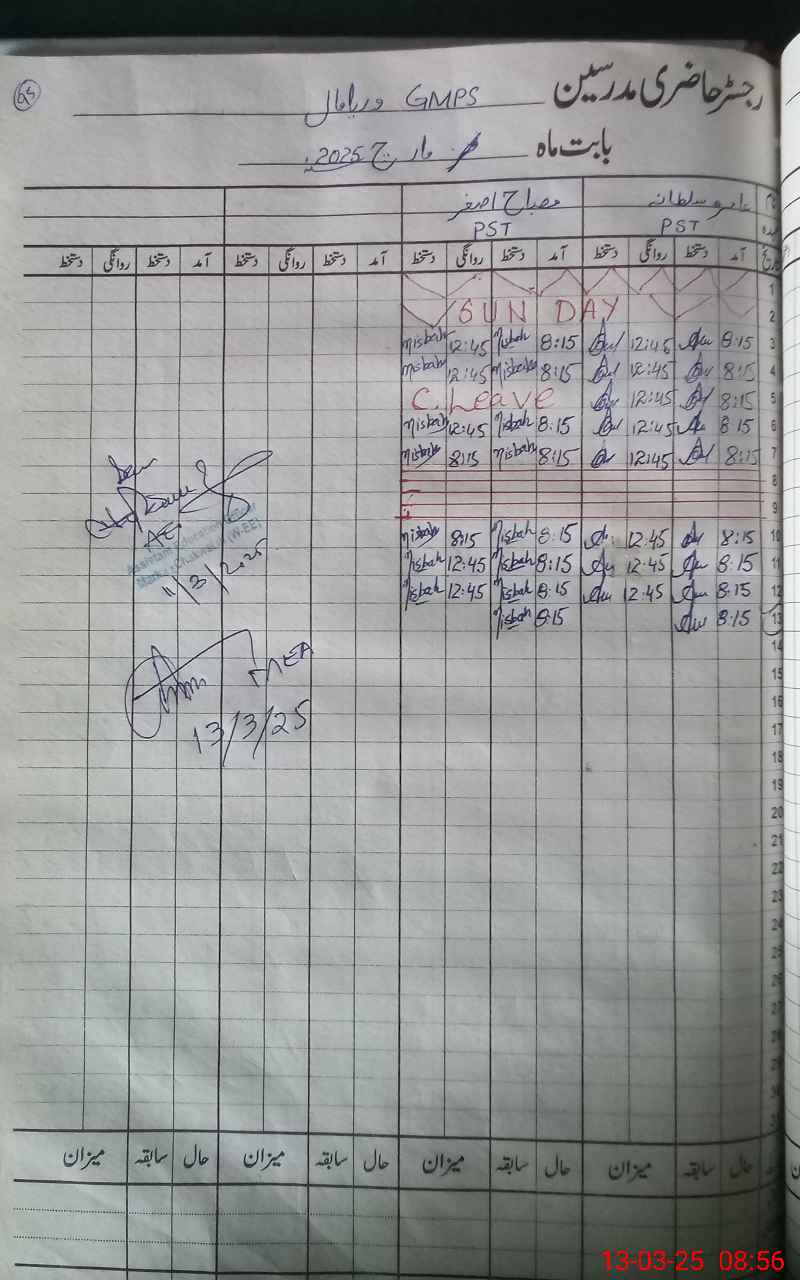 رجسٹر حاضری مدرسین GMPS
95
بابت ماہ مارچ 2025
نام سلطانہ مصباح اصغر
عہدہ PST PST
تاریخ آمد دستخط روانگی دستخط آمد دستخط روانگی دستخط آمد دستخط روانگی دستخط آمد دستخط روانگی دستخط
1
2 SUN DAY
3 8:15 12:45 8:15 Misbah 12:45 Misbah
4 8:15 12:45 8:15 Misbah 12:45 Misbah
5 8:15 12:45 C. Leave
6 8:15 12:45 8:15 Misbah 12:45 Misbah
7 8:15 12:45 8:15 Misbah 8:15 Misbah
8
9
10 8:15 12:45 8:15 Misbah 8:15 Misbah
11 8:15 12:45 8:15 Misbah 12:45 Misbah
12 8:15 12:45 8:15 Misbah 12:45 Misbah
13 8:15 8:15 Misbah
14
15
16
17
18
19
20
21
22
23
24
25
26
27
28
29
30
31
AEO
Assistant Education Officer
Markaz Chakwal (W-EE)
11/3/2025
MEA
13/3/25
حال سابقہ میزان حال سابقہ میزان حال سابقہ میزان حال سابقہ میزان
13-03-25 08:56